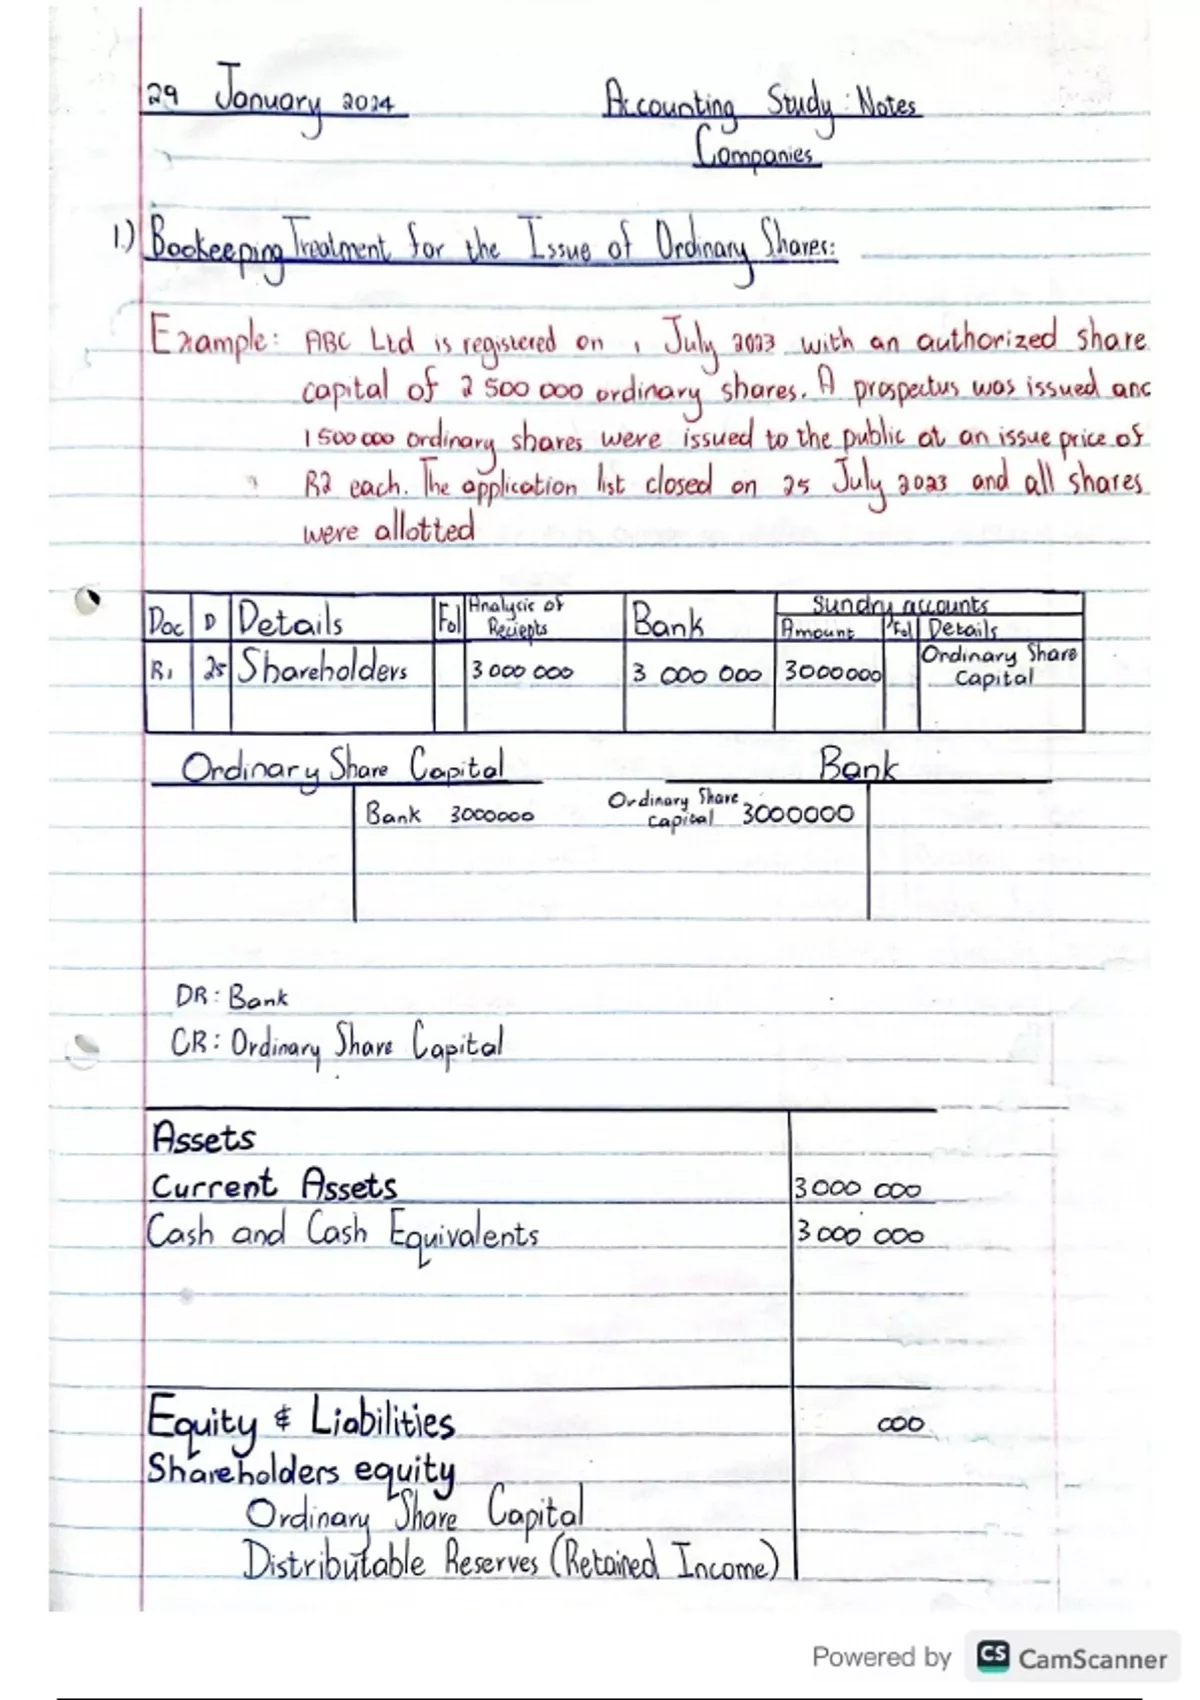 29 January 2024 Accounting Study: Notes
Companies
1.) Bookeeping Treatment for the Issue of Ordinary Shares:
Example: ABC Ltd is registered on 1 July 2023 with an authorized share
capital of 2 500 000 ordinary shares. A prospectus was issued anc
1 500 000 ordinary shares were issued to the public at an issue price of
R2 each. The application list closed on 25 July 2023 and all shares
were allotted
Doc D Details Fol Analysis of Reciepts Bank Sundry accounts
Amount Fol Details
R1 25 Shareholders 3 000 000 3 000 000 3000000 Ordinary Share Capital
Ordinary Share Capital Bank
Bank 3000000 Ordinary Share capital 3000000
DR: Bank
CR: Ordinary Share Capital
Assets
Current Assets 3 000 000
Cash and Cash Equivalents 3 000 000
Equity & Liabilities 000
Shareholders equity
Ordinary Share Capital
Distributable Reserves (Retained Income)
Powered by CS CamScanner